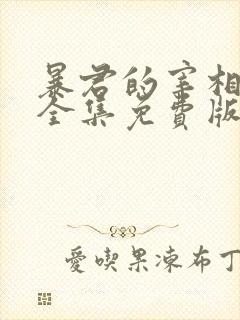 暴君的宰相
全集免費版
愛喫果凍布丁